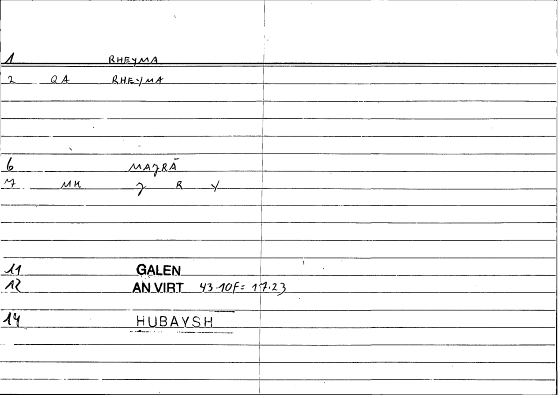 1 RHEYMA
2 QA RHEYMA
6 MAJRĀ
7 MK J R Y
11 GALEN
12 AN VIRT 43.10F = 17.23
14 HUBAYSH